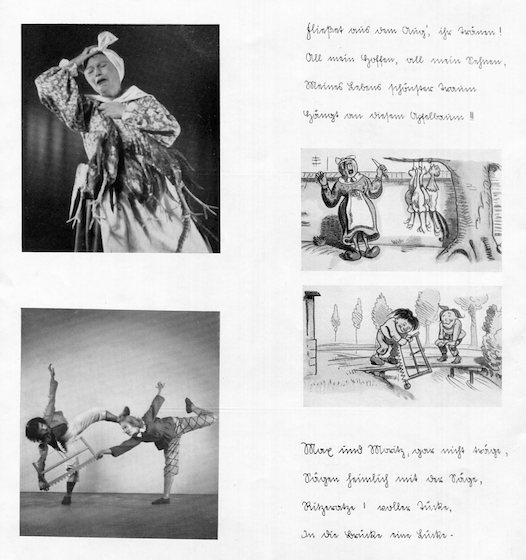 Fließet aus dem Aug', ihr Tränen!
All mein Hoffen, all mein Sehnen,
Meines Lebens schönster Traum
Hängt an diesem Apfelbaum!!
Max und Moritz, gar nicht träge,
Sägen heimlich mit der Säge,
Ritzeratze! voller Tücke,
In die Brücke eine Lücke.